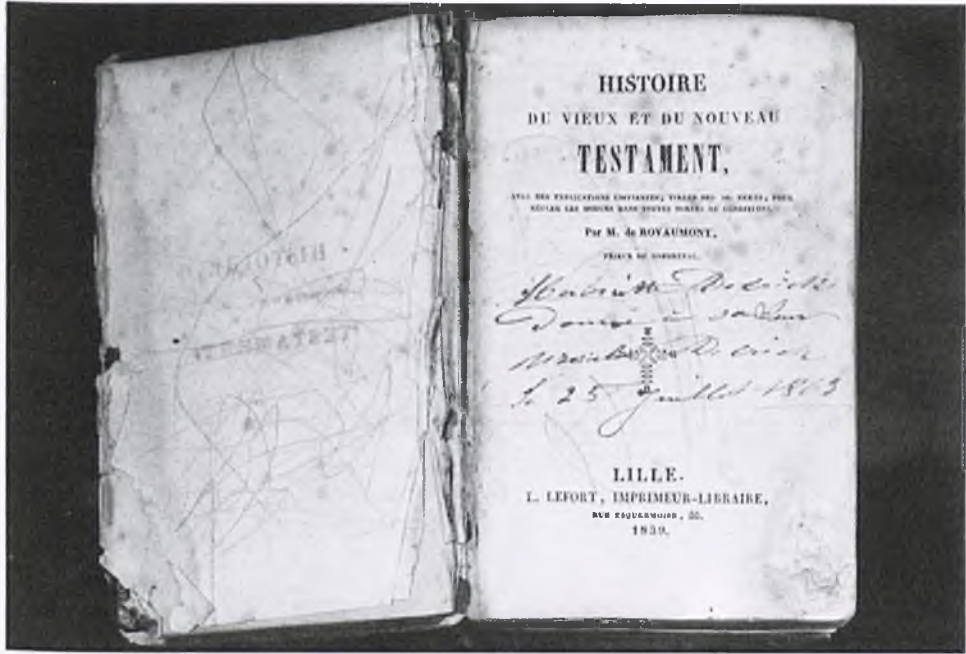 HISTOIRE
DU VIEUX ET DU NOUVEAU
TESTAMENT,
AVEC DES EXPLICATIONS ÉDIFIANTES, TIRÉES DES SS. PÈRES, POUR
RÉGLER LES MŒURS DANS TOUTES SORTES DE CONDITIONS,
Par M. de ROYAUMONT,
PRIEUR DE SOMBREVAL.
Donné à sa
le 25 Juillet 1863
LILLE.
L. LEFORT, IMPRIMEUR-LIBRAIRE,
RUE ESQUERMOISE, 55.
1839.